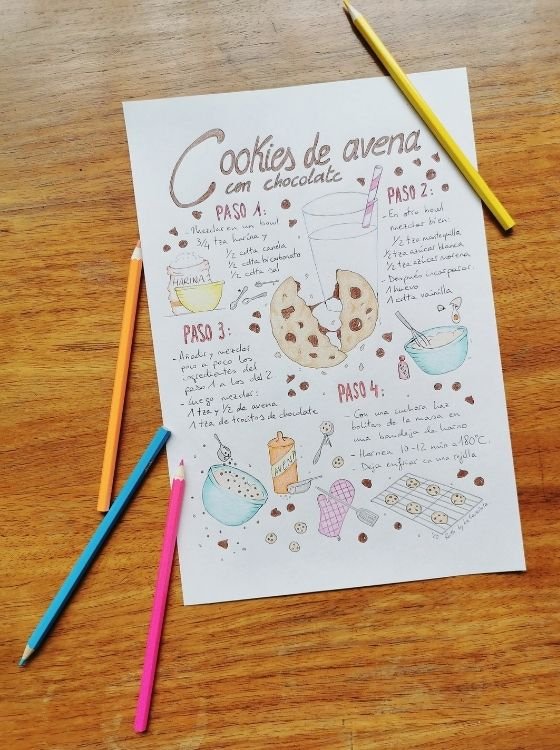 Cookies de avena
con chocolate
PASO 1:
- Mezclar en un bowl
3/4 tza harina y
1/2 cdta canela
1/2 cdta bicarbonato
1/2 cdta sal
HARINA
PASO 2:
- En otro bowl
mezclar bien:
1/2 tza mantequilla
1/2 tza azúcar blanca
1/2 tza azúcar morena
- Después incorporar:
1 huevo
1 cdta vainilla
PASO 3:
- Añadir y mezclar
poco a poco los
ingredientes del
paso 1 a los del 2.
- Luego mezclar:
1 tza y 1/2 de avena
1 tza de trocitos de chocolate
PASO 4:
- Con una cuchara haz
bolitas de la masa en
una bandeja de horno
- Hornea 10-12 min a 180°C.
- Deja enfriar en una rejilla
AVENA